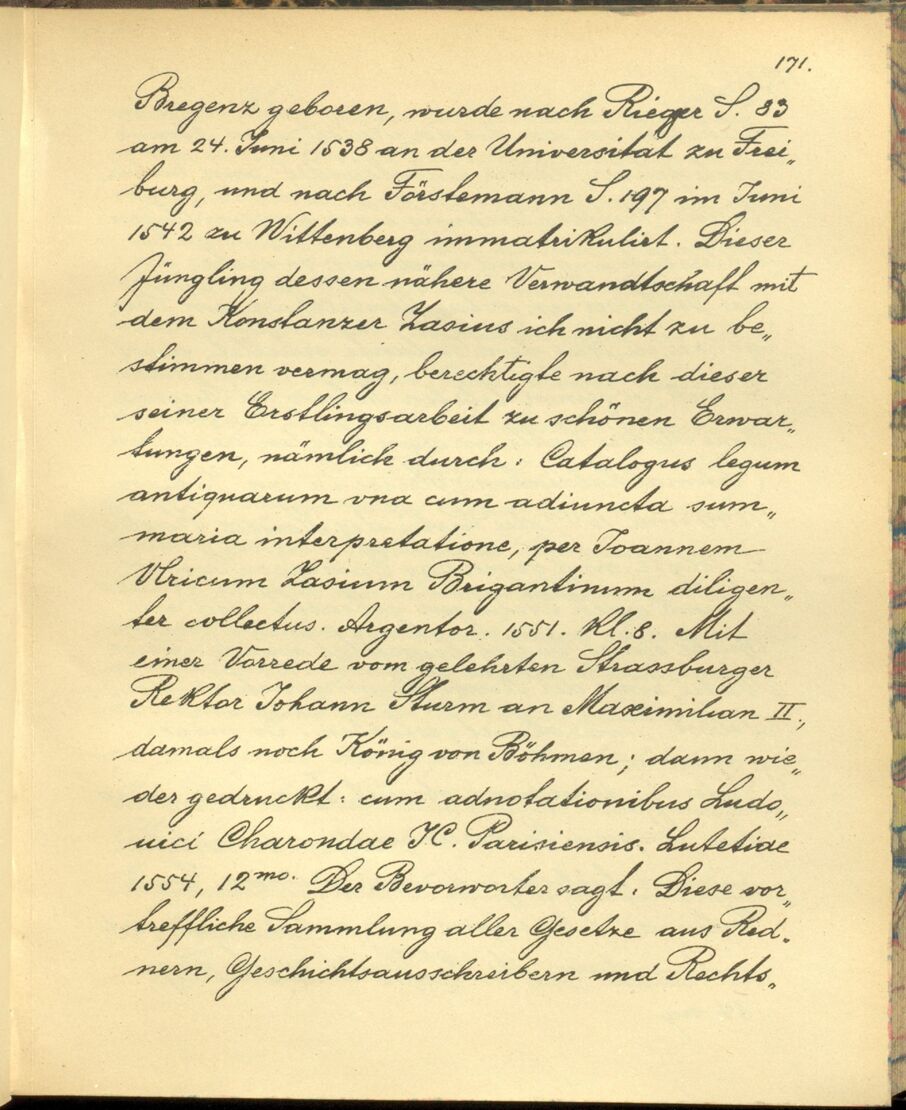 171.
Bregenz geboren, wurde nach Rieger S. 83
am 24. Juni 1538 an der Universität zu Frei„
burg, und nach Förstemann S. 197 im Juni
1542 zu Wittenberg immatrikulirt. Dieser
Jüngling dessen nähere Verwandtschaft mit
dem Konstanzer Zasius ich nicht zu be„
stimmen vermag, berechtigte nach dieser
seiner Erstlingsarbeit zu schönen Erwar„
tungen, nämlich durch: Catalogus legum
antiquarum vna cum adiuncta sum„
maria interpretatione, per Ioannem
Vlricum Zasium Brigantinum diligen„
ter collectus. Argentor. 1551. kl. 8. Mit
einer Vorrede vom gelehrten Strassburger
Rektor Johann Sturm an Maximilian II.,
damals noch König von Böhmen; dann wie„
der gedruckt: cum adnotationibus Ludo„
uici Charondae IC. Parisiensis. Lutetiae
1554, 12mo. Der Bevorworter sagt: Diese vor„
treffliche Sammlung aller Gesetze aus Red„
nern, Geschichtsausschreibern und Rechts„